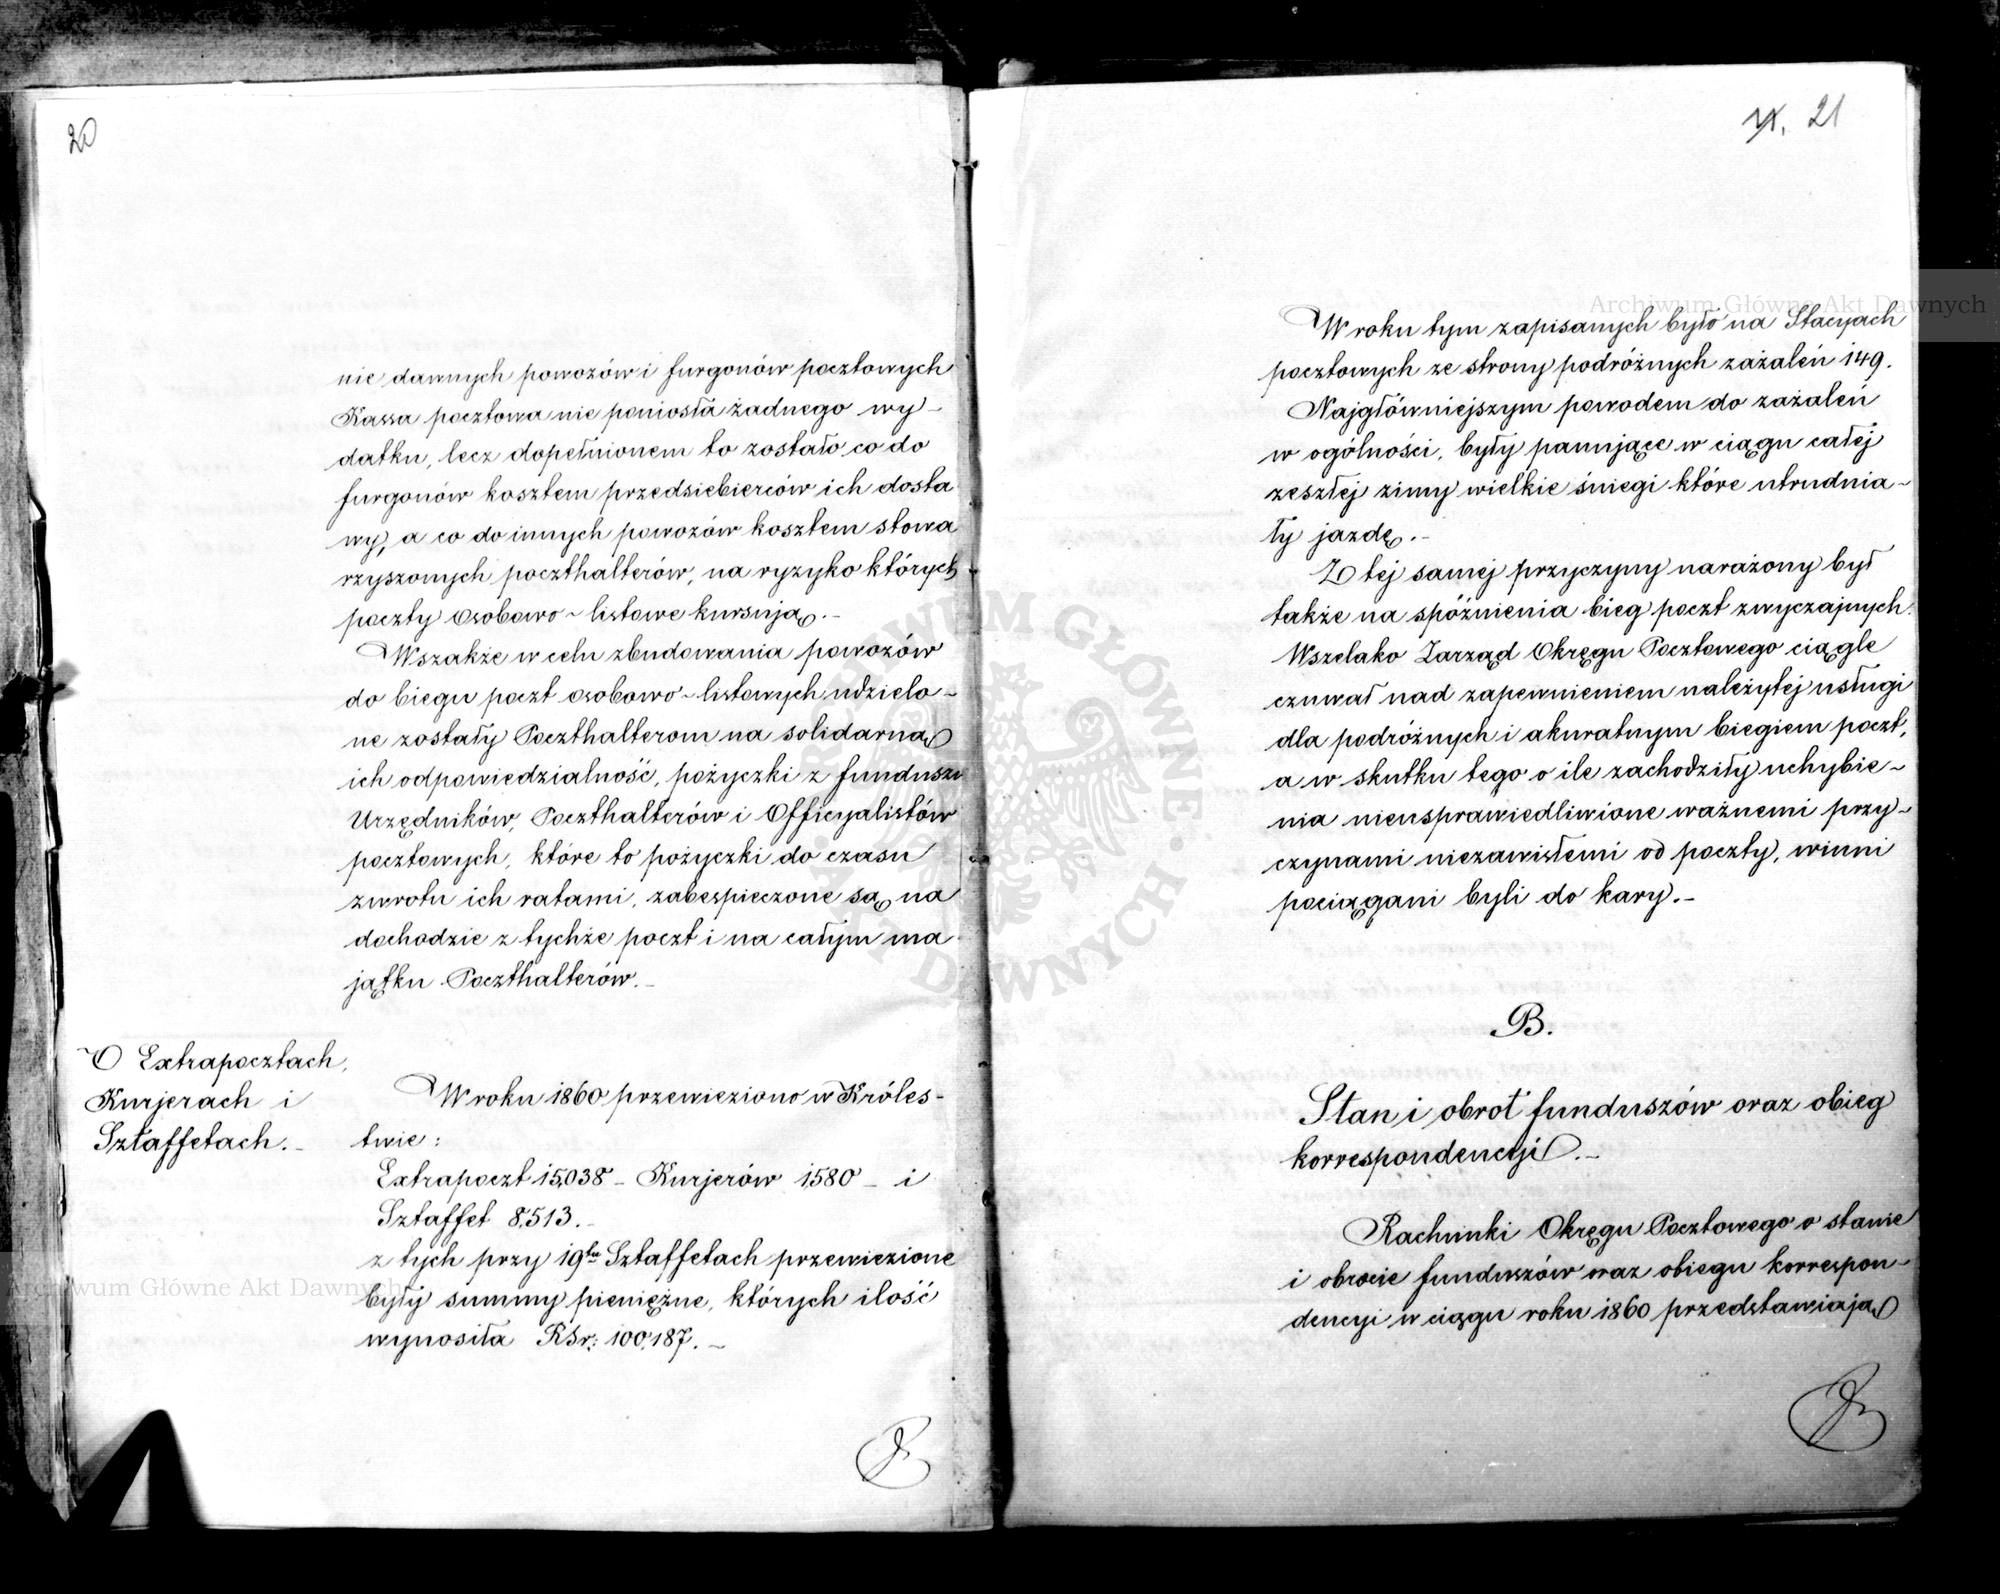 20
nie dawnych powozów i furgonów pocztowych
Kassa pocztowa nie poniosła żadnego wy-
datku, lecz dopełnionem to zostało co do
furgonów kosztem przedsiebierców ich dosta
wy, a co do innych powozów kosztem stowa
rzyszonych poczthalterów, na ryzyko których
poczty osobowo-listowe kursują.-
Wszakże w celu zbudowania powozów
do biegu poczt osobowo-listowych udzielo-
ne zostały Poczthalterom na solidarną
ich odpowiedzialność, pożyczki z funduszu
Urzędników, Poczthalterów i Officyalistów
pocztowych, które to pożyczki do czasu
zwrotu ich ratami, zabespieczone są na
dochodzie z tychże poczt i na całym ma
jątku Poczthalterów.-
O Extrapocztach,
Kurjerach i
Sztaffetach.-
W roku 1860 przewieziono w Króles-
twie:
Extrapoczt 15,038 - Kurjerów 1580 - i
Sztaffet 8,513.-
z tych przy 19tu Sztaffetach przewiezione
były summy pieniężne, których ilość
wynosiła RSr: 100,187.-
21
W roku tym zapisanych było na Stacyach
pocztowych ze strony podróżnych zażaleń 149.
Najgłówniejszym powodem do zażaleń
w ogólności, były panujące w ciągu całej
zeszłej zimy wielkie śniegi które utrudnia-
ły jazdę.-
Z tej samej przyczyny narażony był
także na spóźnienia bieg poczt zwyczajnych.
Wszelako Zarząd Okręgu Pocztowego ciągle
czuwał nad zapewnieniem należytej usługi
dla podróżnych i akuratnym biegiem poczt,
a w skutku tego o ile zachodziły uchybie-
nia nieusprawiedliwione ważnemi przy-
czynami niezawisłemi od poczty, winni
pociągani byli do kary.-
B.
Stan i obrot funduszów oraz obieg
korrespondencyi.-
Rachunki Okręgu Pocztowego o stanie
i obrocie funduszów oraz obiegu korrespon-
dencyi w ciągu roku 1860 przedstawiają
Archiwum Główne Akt Dawnych
Archiwum Główne Akt Dawnych
ARCHIWUM GŁÓWNE AKT DAWNYCH